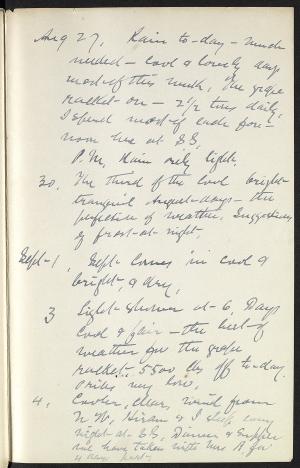 Aug 27, Rain to-day - much
needed - cool & lovely days
most of this week, The grape
racket - on - 2 1/2 tons daily,
I spend most of each fore-
noon here at S.S,
P.M. Rain only light,
30, The third of the cool bright
tranquil August days - the
perfection of weather, Suggestions
of frost at night,
Sept - 1, Sept comes in cool &
bright, & dry,
3 Light shower at 6, Days
cool & fair - the best of
weather for the grape
racket. 5500 lbs off to-day.
Prices very low,
4, Cooler, clear, wind from
N W, Hiram & I sleep every
night at S.S, Dinner & Supper
we have taken with Mrs
4 days past